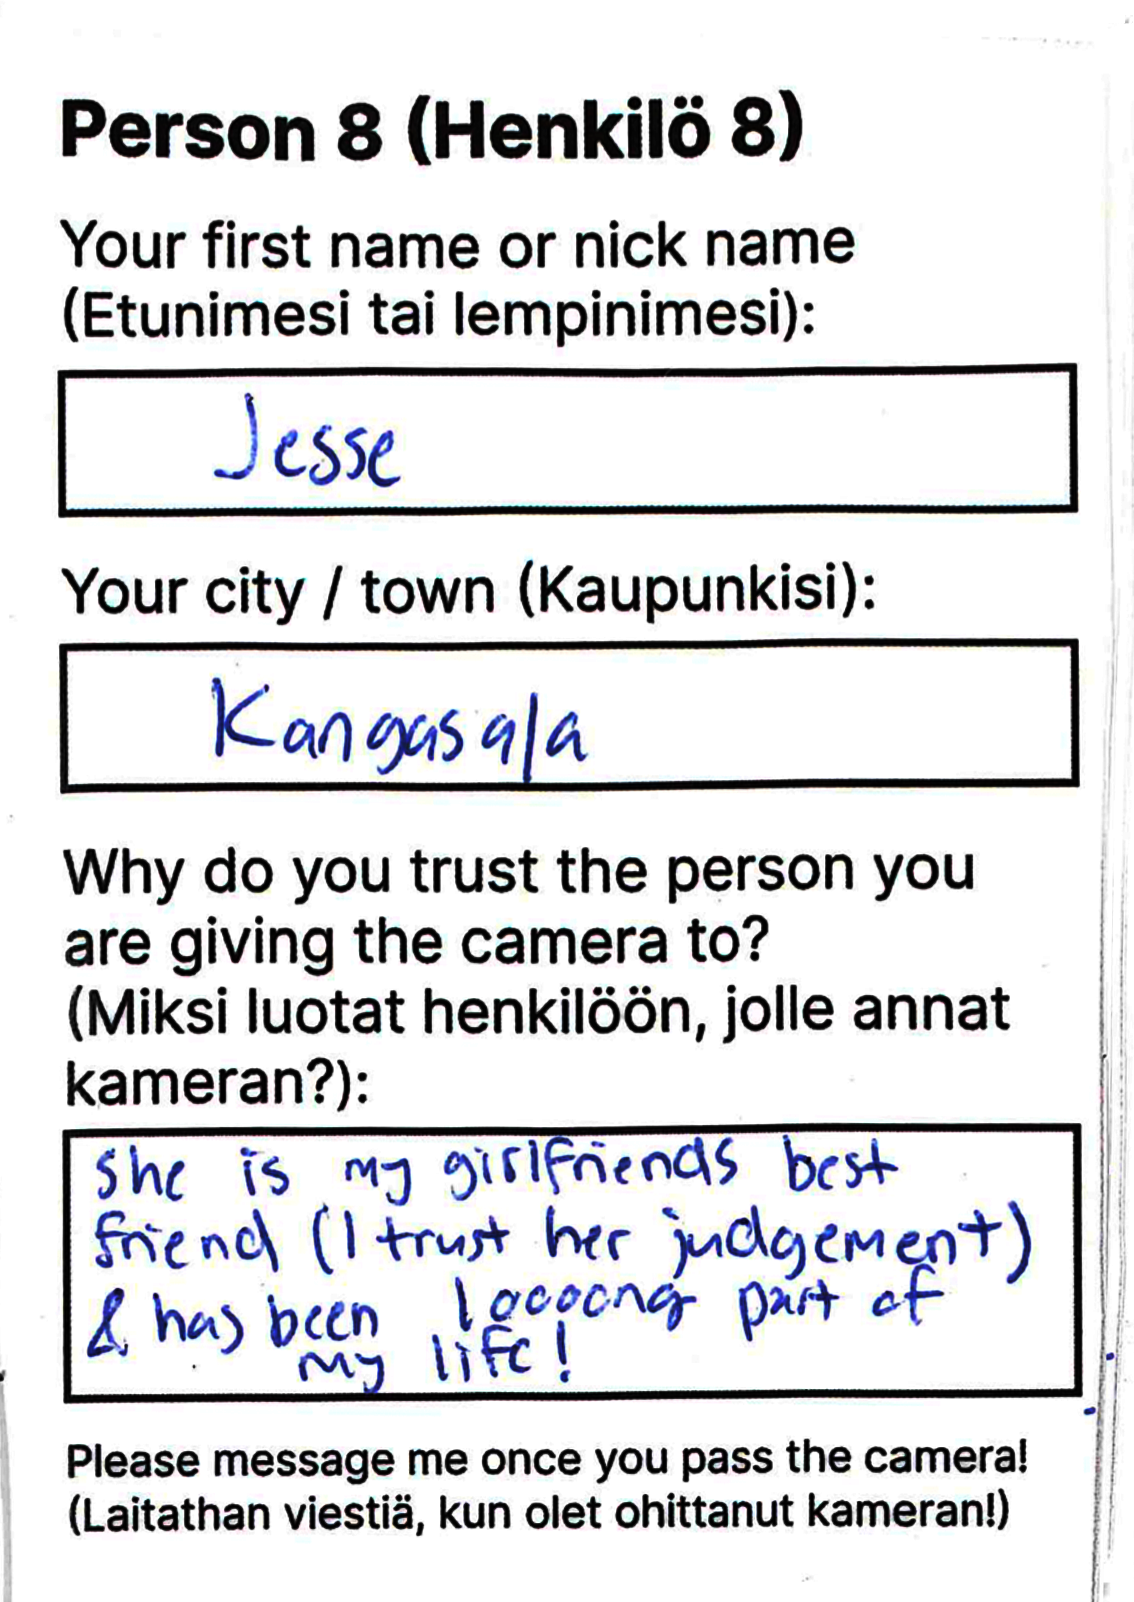 Person 8 (Henkilö 8)
Your first name or nick name
(Etunimesi tai lempinimesi):
Jesse
Your city / town (Kaupunkisi):
Kangasala
Why do you trust the person you
are giving the camera to?
(Miksi luotat henkilöön, jolle annat
kameran?):
she is my girlfriends best
friend (I trust her judgement)
& has been looooong part of
my life!
Please message me once you pass the camera!
(Laitathan viestiä, kun olet ohittanut kameran!)